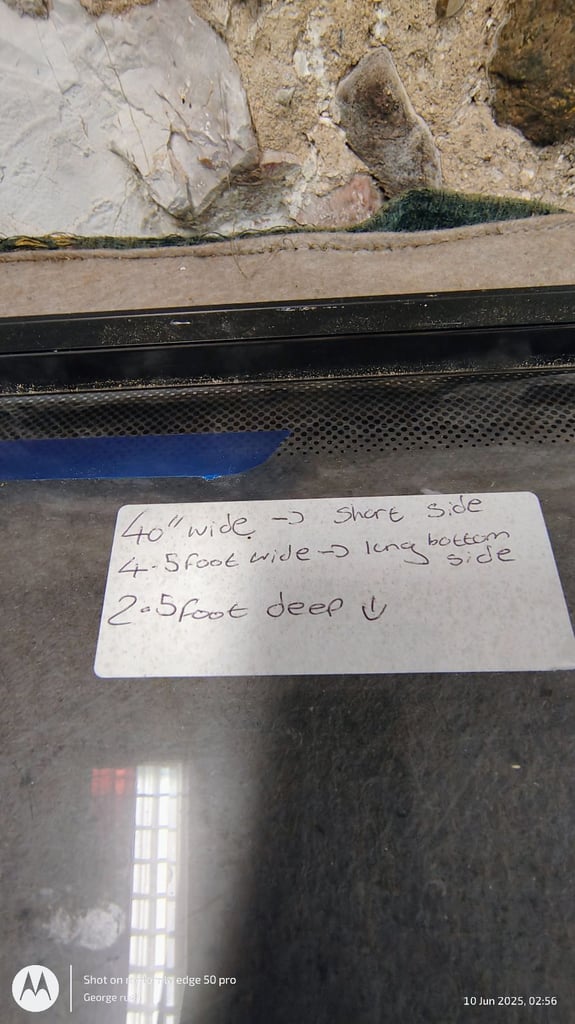 40" wide. → short side
4.5 foot wide → long bottom
side
2.5 foot deep ↓
Shot on motorola edge 50 pro
George ru
10 Jun 2025, 02:56